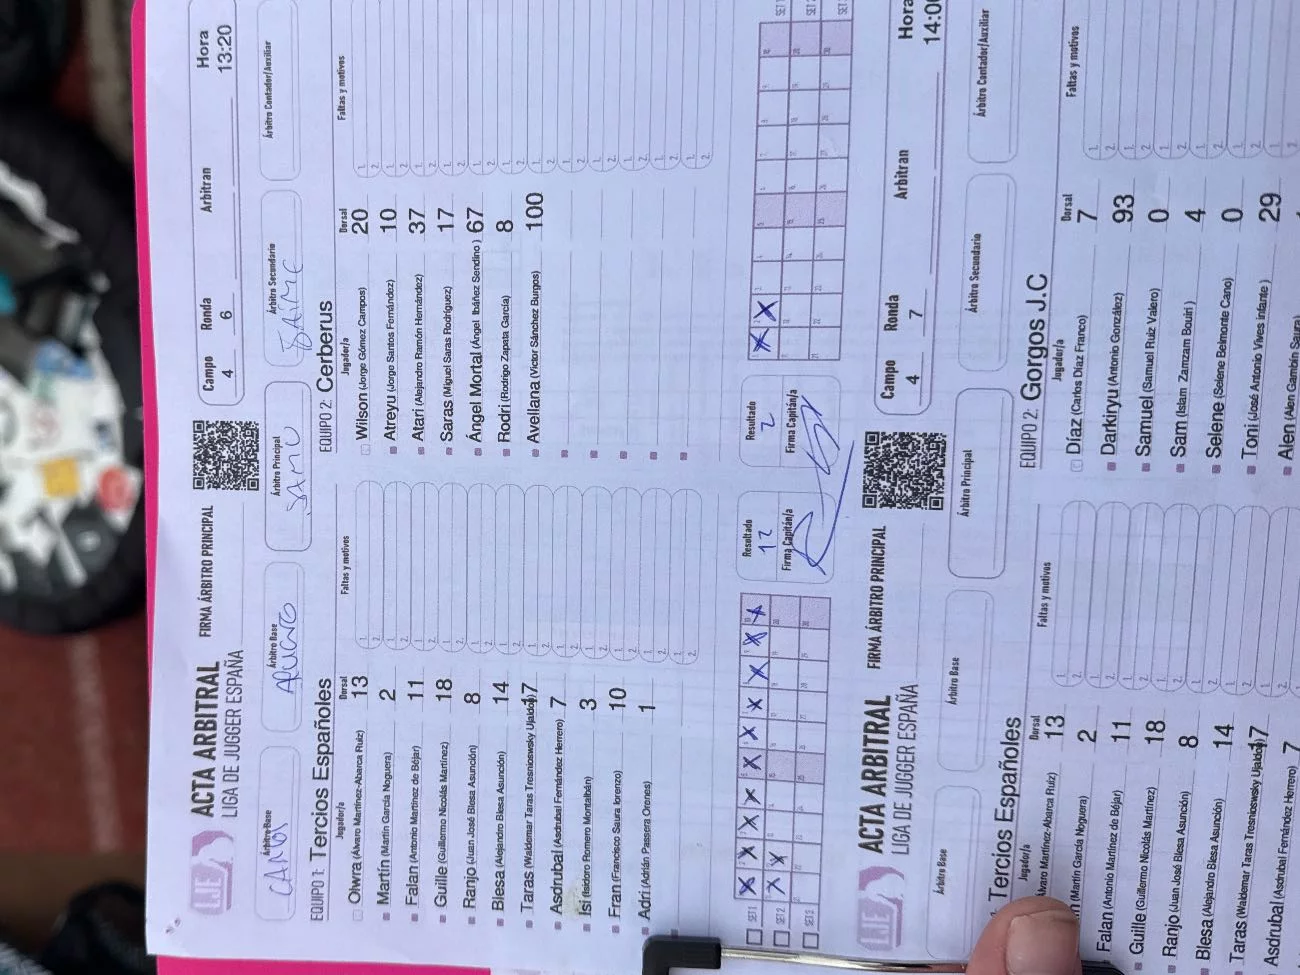 LJE
ACTA ARBITRAL
LIGA DE JUGGER ESPAÑA
FIRMA ÁRBITRO PRINCIPAL
Campo
4
Ronda
6
Arbitran
Hora
13:20
Árbitro Base
CARLOS
Árbitro Base
ALVARO
Árbitro Principal
SAMU
Árbitro Secundario
JAIME
Árbitro Contador/Auxiliar
EQUIPO 1: Tercios Españoles
Jugador/a
Dorsal
Faltas y motivos
Olwra (Álvaro Martínez-Abarca Ruiz) 13
Martín (Martín García Noguera) 2
Falan (Antonio Martínez de Béjar) 11
Guille (Guillermo Nicolás Martínez) 18
Ranjo (Juan José Blesa Asunción) 8
Blesa (Alejandro Blesa Asunción) 14
Taras (Waldemar Taras Tresnioswsky Ujaldón) 17
Asdrubal (Asdrubal Fernández Herrero) 7
Isi (Isidoro Romero Montalbán) 3
Fran (Francisco Saura lorenzo) 10
Adri (Adrián Passera Orenes) 1
EQUIPO 2: Cerberus
Jugador/a
Dorsal
Faltas y motivos
Wilson (Jorge Gómez Campos) 20
Atreyu (Jorge Santos Fernández) 10
Atari (Alejandro Ramón Hernández) 37
Saras (Miguel Saras Rodríguez) 17
Ángel Mortal (Ángel Ibáñez Sendino) 67
Rodri (Rodrigo Zapata García) 8
Avellana (Víctor Sánchez Burgos) 100
SET 1
SET 2
SET 3
Resultado
12
Firma Capitán/a
Resultado
2
Firma Capitán/a
LJE
ACTA ARBITRAL
LIGA DE JUGGER ESPAÑA
FIRMA ÁRBITRO PRINCIPAL
Campo
4
Ronda
7
Arbitran
Hora
14:00
Árbitro Base
Árbitro Base
Árbitro Principal
Árbitro Secundario
Árbitro Contador/Auxiliar
Tercios Españoles
Jugador/a
Dorsal
Faltas y motivos
Álvaro Martínez-Abarca Ruiz) 13
(Martín García Noguera) 2
Falan (Antonio Martínez de Béjar) 11
Guille (Guillermo Nicolás Martínez) 18
Ranjo (Juan José Blesa Asunción) 8
Blesa (Alejandro Blesa Asunción) 14
Taras (Waldemar Taras Tresnioswsky Ujaldón) 17
Asdrubal (Asdrubal Fernández Herrero) 7
EQUIPO 2: Gorgos J.C
Jugador/a
Dorsal
Faltas y motivos
Díaz (Carlos Díaz Franco) 7
Darkiryu (Antonio González) 93
Samuel (Samuel Ruiz Valero) 0
Sam (Islam Zamzam Bouiri) 4
Selene (Selene Belmonte Cano) 0
Toni (José Antonio Vives infante) 29
Alen (Alen Gambín Saura)